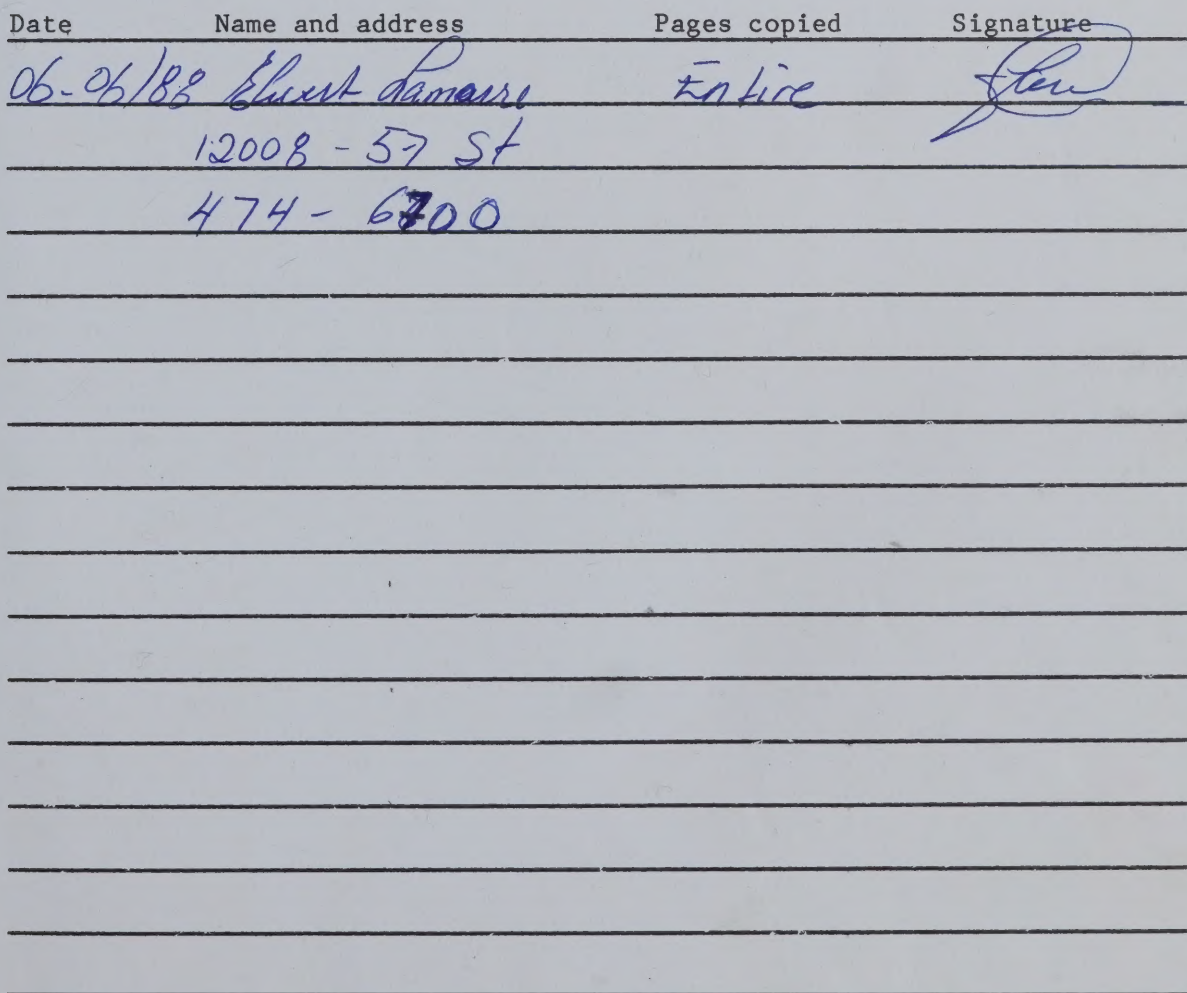 Date Name and address Pages copied Signature
06-06/88 Lamarre Entire
12008 - 57 St
474 - 6700